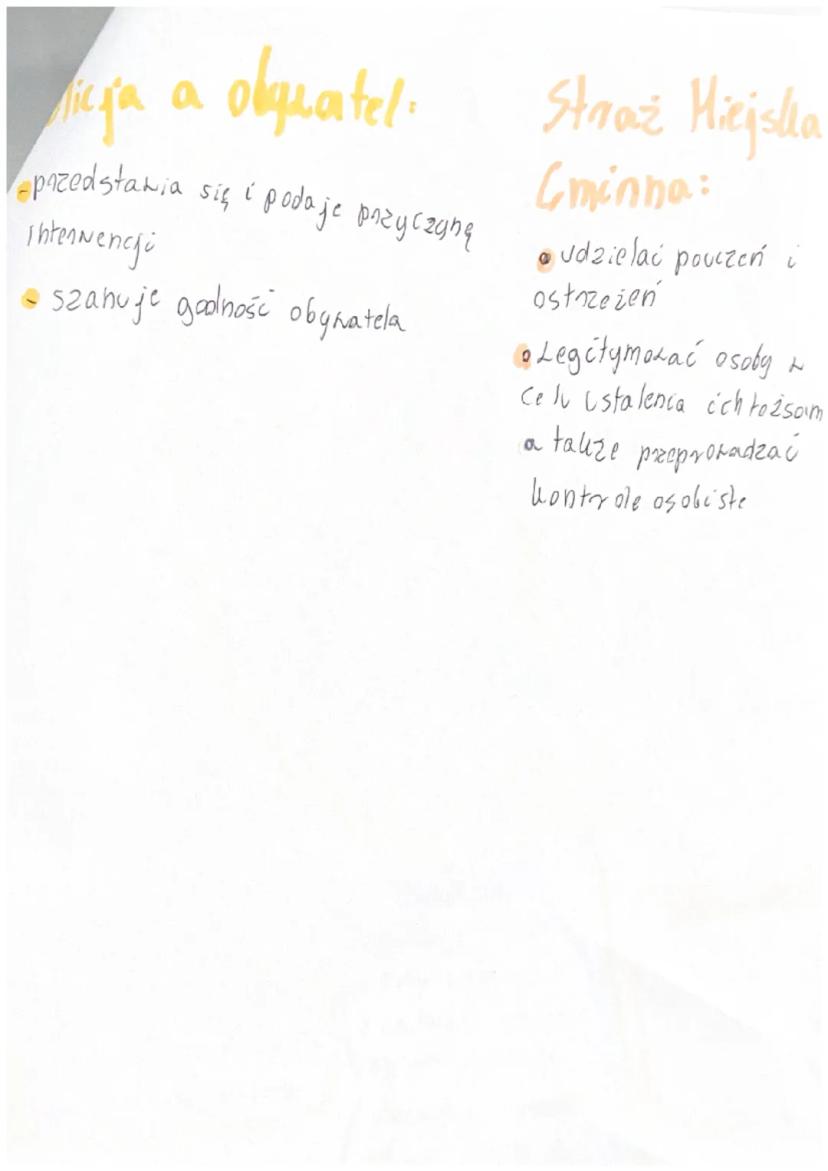 licja a obywatel:
-przedstawia się i podaje przyczynę
interwencji
- szanuje godność obywatela
Straż Miejska
Gminna:
• udzielać pouczeń i
ostrzeżeń
• Legitymować osoby w
celu ustalenia ich tożsam
a także przeprowadzać
kontrole osobiste